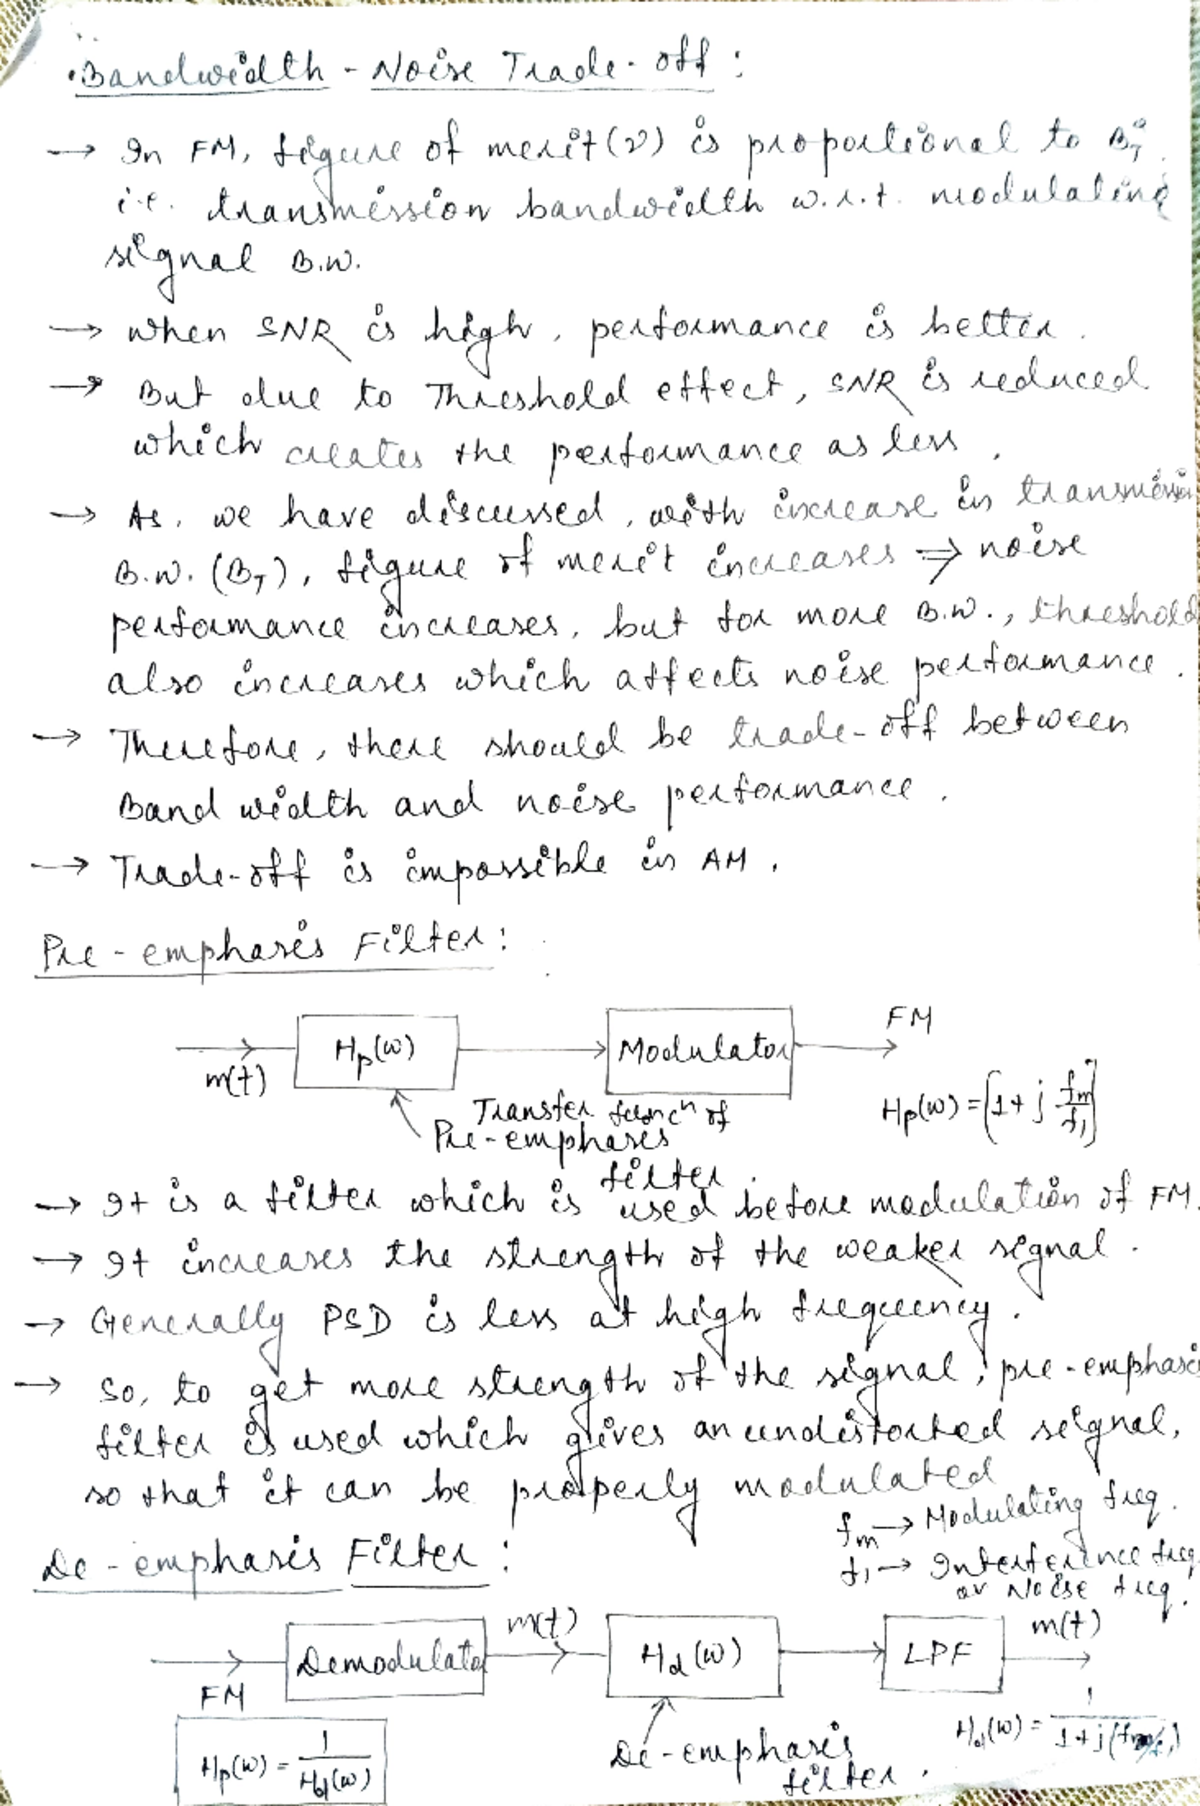 Bandwidth - Noise Trade-off :
→ In FM, figure of merit (γ) is proportional to B_T²
i.e. transmission bandwidth w.r.t. modulating
signal B.W.
→ When SNR is high, performance is better.
→ But due to Threshold effect, SNR is reduced
which creates the performance as less.
→ As, we have discussed, with increase in transmission
B.W. (B_T), figure of merit increases ⇒ noise
performance increases, but for more B.W., threshold
also increases which affects noise performance.
→ Therefore, there should be trade-off between
Band width and noise performance.
→ Trade-off is impossible in AM.
Pre-emphasis Filter :
m(t) H_p(ω) Modulator FM
Transfer funcⁿ of
Pre-emphasis
filter.
H_p(ω) = [1 + j f_m/f_1]
→ It is a filter which is used before modulation of FM.
→ It increases the strength of the weaker signal.
→ Generally PSD is less at high frequency.
→ So, to get more strength of the signal, pre-emphasis
filter is used which gives an undistorted signal,
so that it can be properly modulated
f_m → Modulating freq.
f_1 → Interference freq.
or Noise freq.
De-emphasis Filter :
FM Demodulator m(t) H_d(ω) LPF m(t)
De-emphasis
filter.
H_p(ω) = 1/H_d(ω)
H_d(ω) = 1/1+j(f_m/f_1)